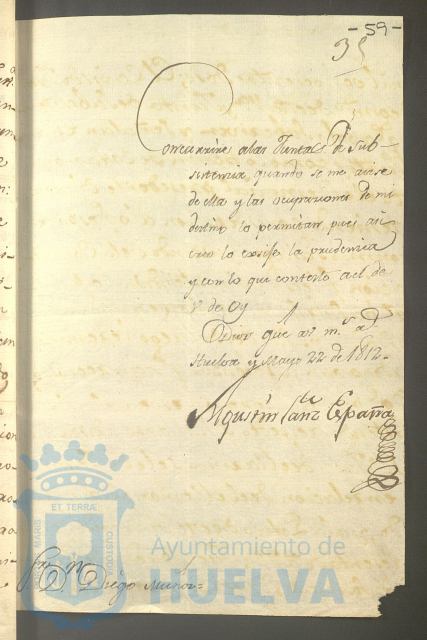 -59-
35
Concurrire a las Juntas de Sub-
sistencia, quando se me avise
de ella y las ocupaciones de mi
destino lo permitan, pues asi
creo lo exsije la prudencia
y con lo que contesto a el de
V. de Oy
Dios gûe a V. m.s a.s
Huelva y Mayo 22 de 1812.
Agustin España
Sor. Dn. Diego Muñoz=
PORTUS MARIS
ET TERRÆ
CUSTODIA
Ayuntamiento de
HUELVA